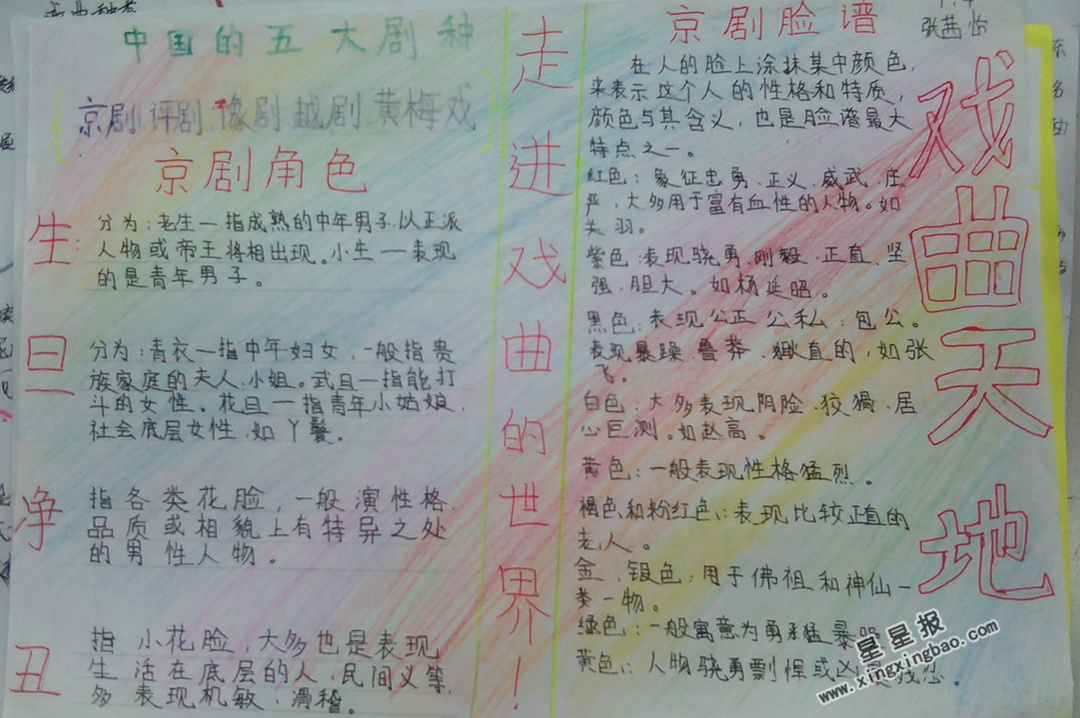 中国的五大剧种
京剧 评剧 豫剧 越剧 黄梅戏
京剧角色
生
分为:老生一指成熟的中年男子.以正派
人物或帝王将相出现。小生一表现
的是青年男子。
旦
分为:青衣一指中年妇女,一般指贵
族家庭的夫人.小姐。武旦一指能打
斗的女性。花旦一指青年小姑娘,
社会底层女性,如丫鬟。
净
指各类花脸,一般演性格.
品质或相貌上有特异之处
的男性人物。
丑
指小花脸,大多也是表现
生活在底层的人,民间义等,
多表现机敏.滑稽。
走进戏曲的世界!
京剧脸谱
张茜怡
在人的脸上涂抹某中颜色,
来表示这个人的性格和特质,
颜色与其含义,也是脸谱最大
特点之一。
红色:象征忠勇.正义.威武.庄
严,大多用于富有血性的人物。如
关羽。
紫色:表现骁勇.刚毅.正直.坚
强.胆大。如杨延昭。
黑色:表现公正.公私:包公。
表现暴躁.鲁莽.直的,如张
飞。
白色:大多表现阴险.狡猾.居
心叵测。如赵高。
黄色:一般表现性格猛烈。
褐色和粉红色:表现比较正直的
老人。
金、银色:用于佛祖和神仙一
类一物。
绿色:一般寓意为勇猛暴
黄色:人物骁勇剽悍或凶残忍。
戏曲天地
星星报
www.xingxingbao.com